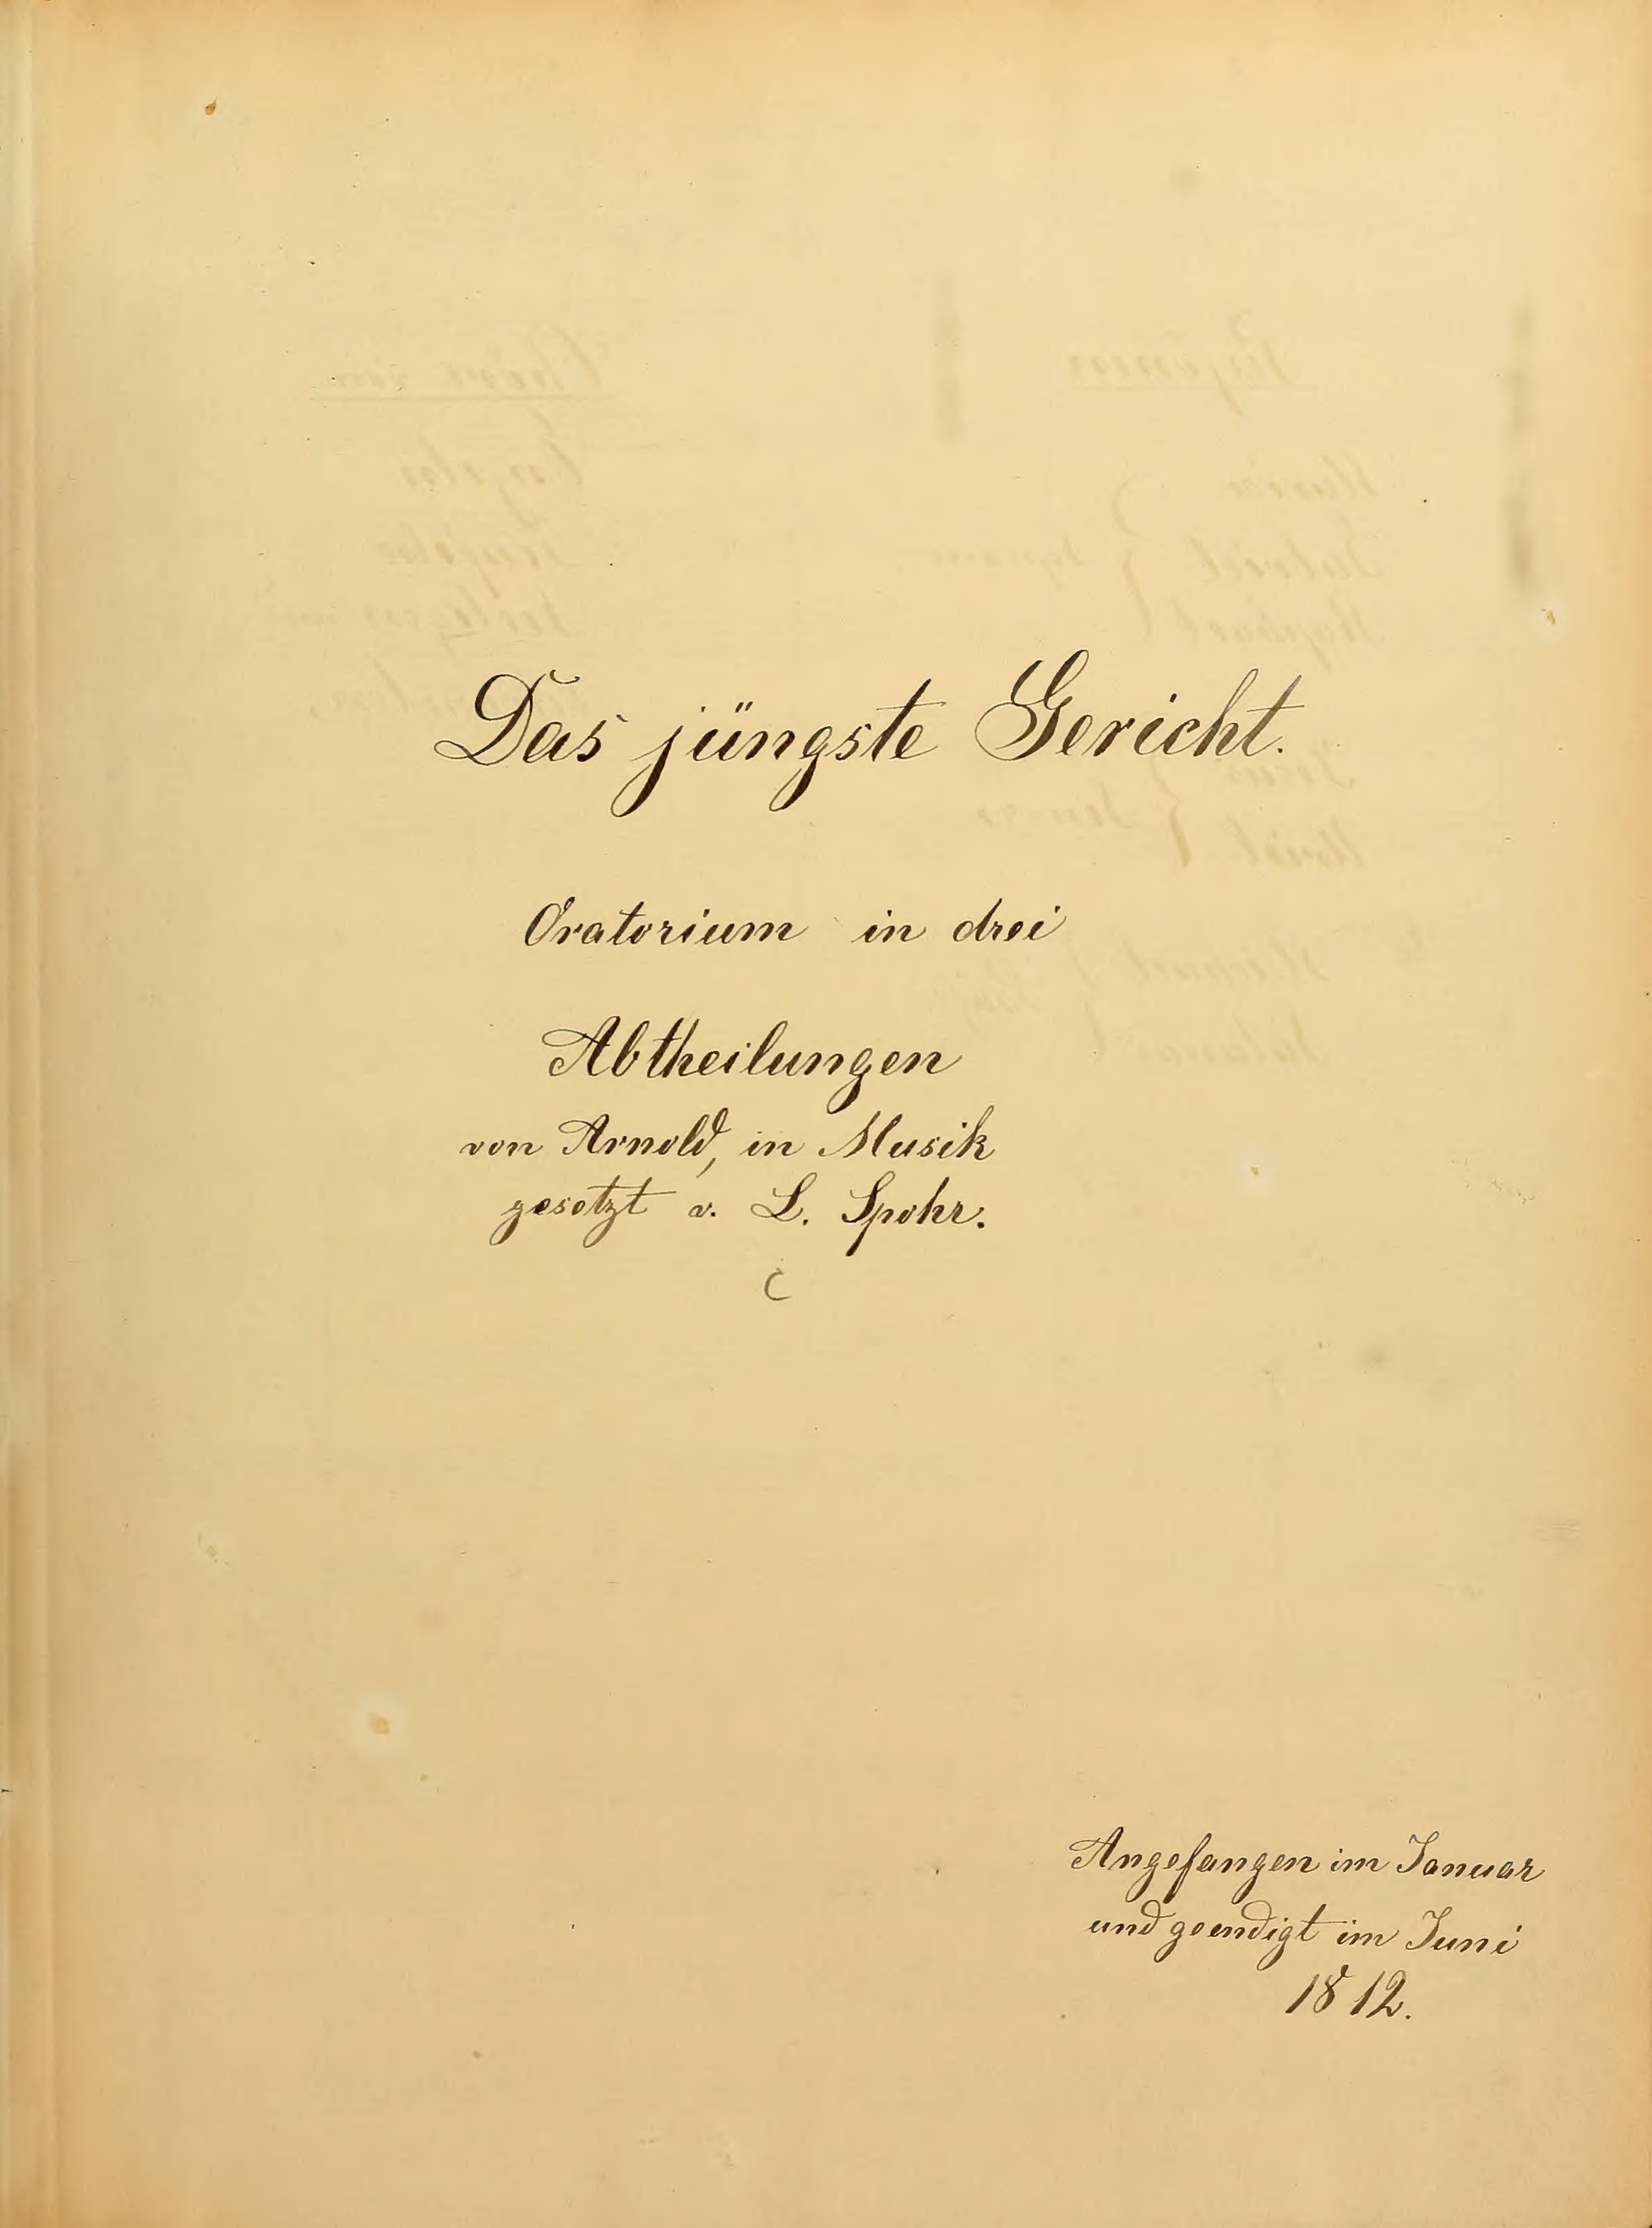 Das jüngste Gericht.
Oratorium in drei
Abtheilungen
von Arnold, in Musik
gesetzt v. L. Spohr.
C
Angefangen im Januar
und geendigt im Juni
1812.